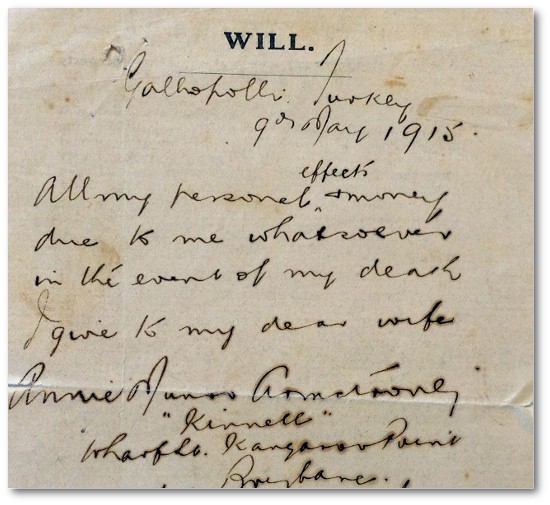 WILL.
Gallipolli. Turkey
9th May 1915.
effects
All my personal & money
due to me whatsoever
in the event of my death
I give to my dear wife
Annie Munro Armstrong
"Kinnell"
Wharf St. Kangaroo Point
Brisbane.